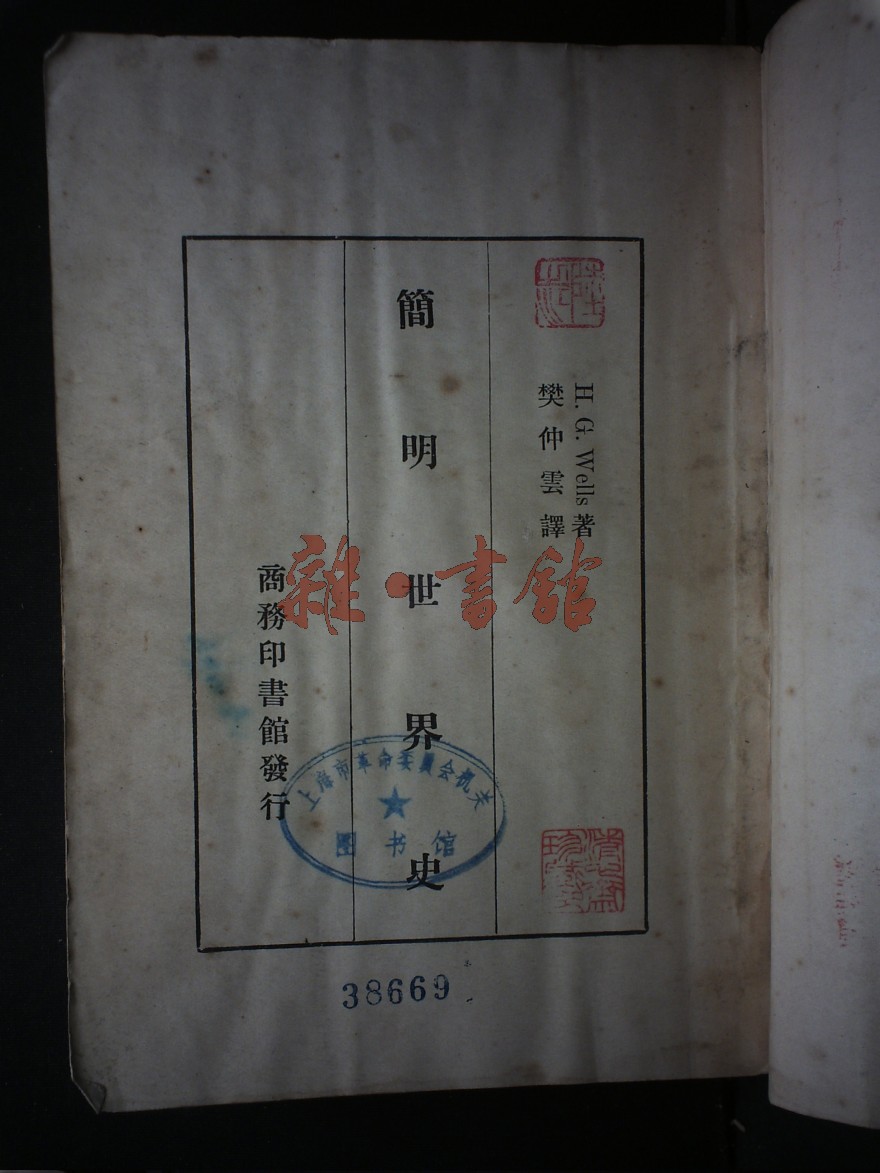 H. G. Wells 著
樊仲雲譯
簡明世界史
商務印書館發行
雜·書館
上海市革命委員会机关
图书馆
38669